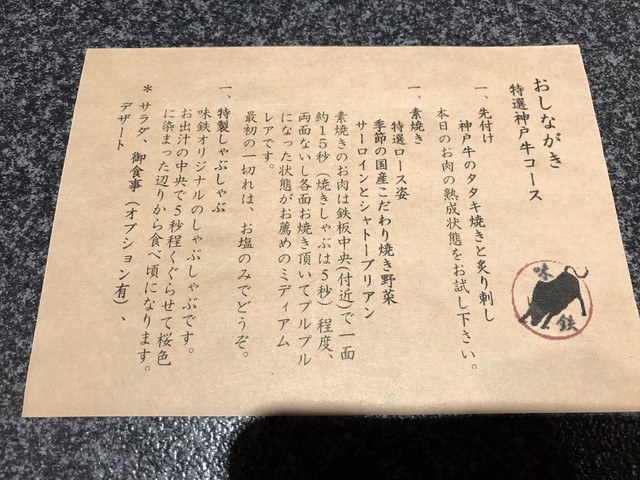 おしながき
特選神戸牛コース
一、先付け
神戸牛のタタキ焼きと炙り刺し
本日のお肉の熟成状態をお試し下さい。
一、素焼き
特選ロース姿
季節の国産こだわり焼き野菜
サーロインとシャトーブリアン
素焼きのお肉は鉄板中央(付近)で一面
約15秒(焼きしゃぶは5秒)程度、
両面ないし各面お焼き頂いてプルプル
になった状態がお薦めのミディアム
レアです。
最初の一切れは、お塩のみでどうぞ。
一、特製しゃぶしゃぶ
味鉄オリジナルのしゃぶしゃぶです。
お出汁の中央で5秒程くぐらせて桜色
に染まった辺りから食べ頃になります。
＊サラダ、御食事(オプション有)、
デザート
味
鉄